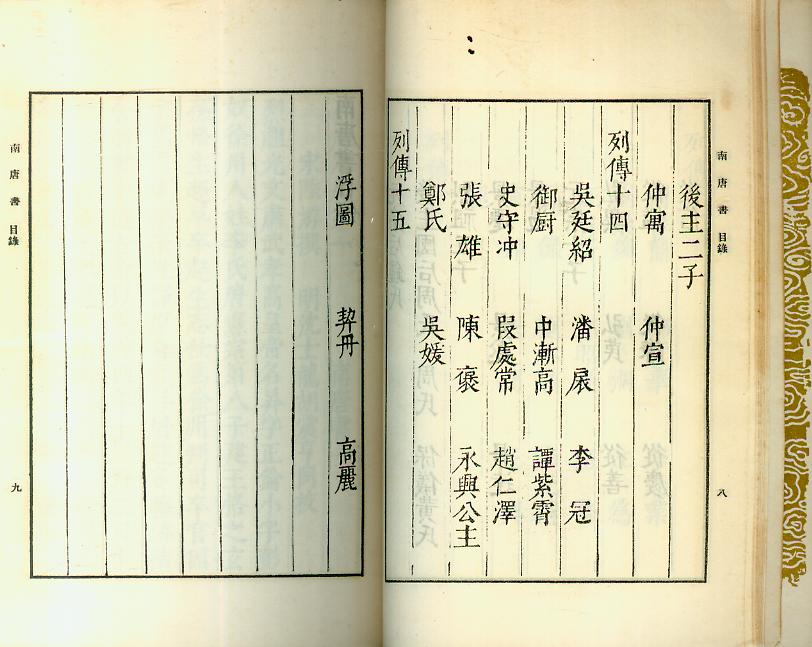 南唐書 目錄
八
後主二子
仲寓 仲宣
列傳十四
吳廷紹 潘扆 李冠
御厨 申漸高 譚紫霄
史守冲 段處常 趙仁澤
張雄 陳褒 永興公主
鄭氏 吳媛
列傳十五
浮圖 契丹 高麗
南唐書 目錄
九